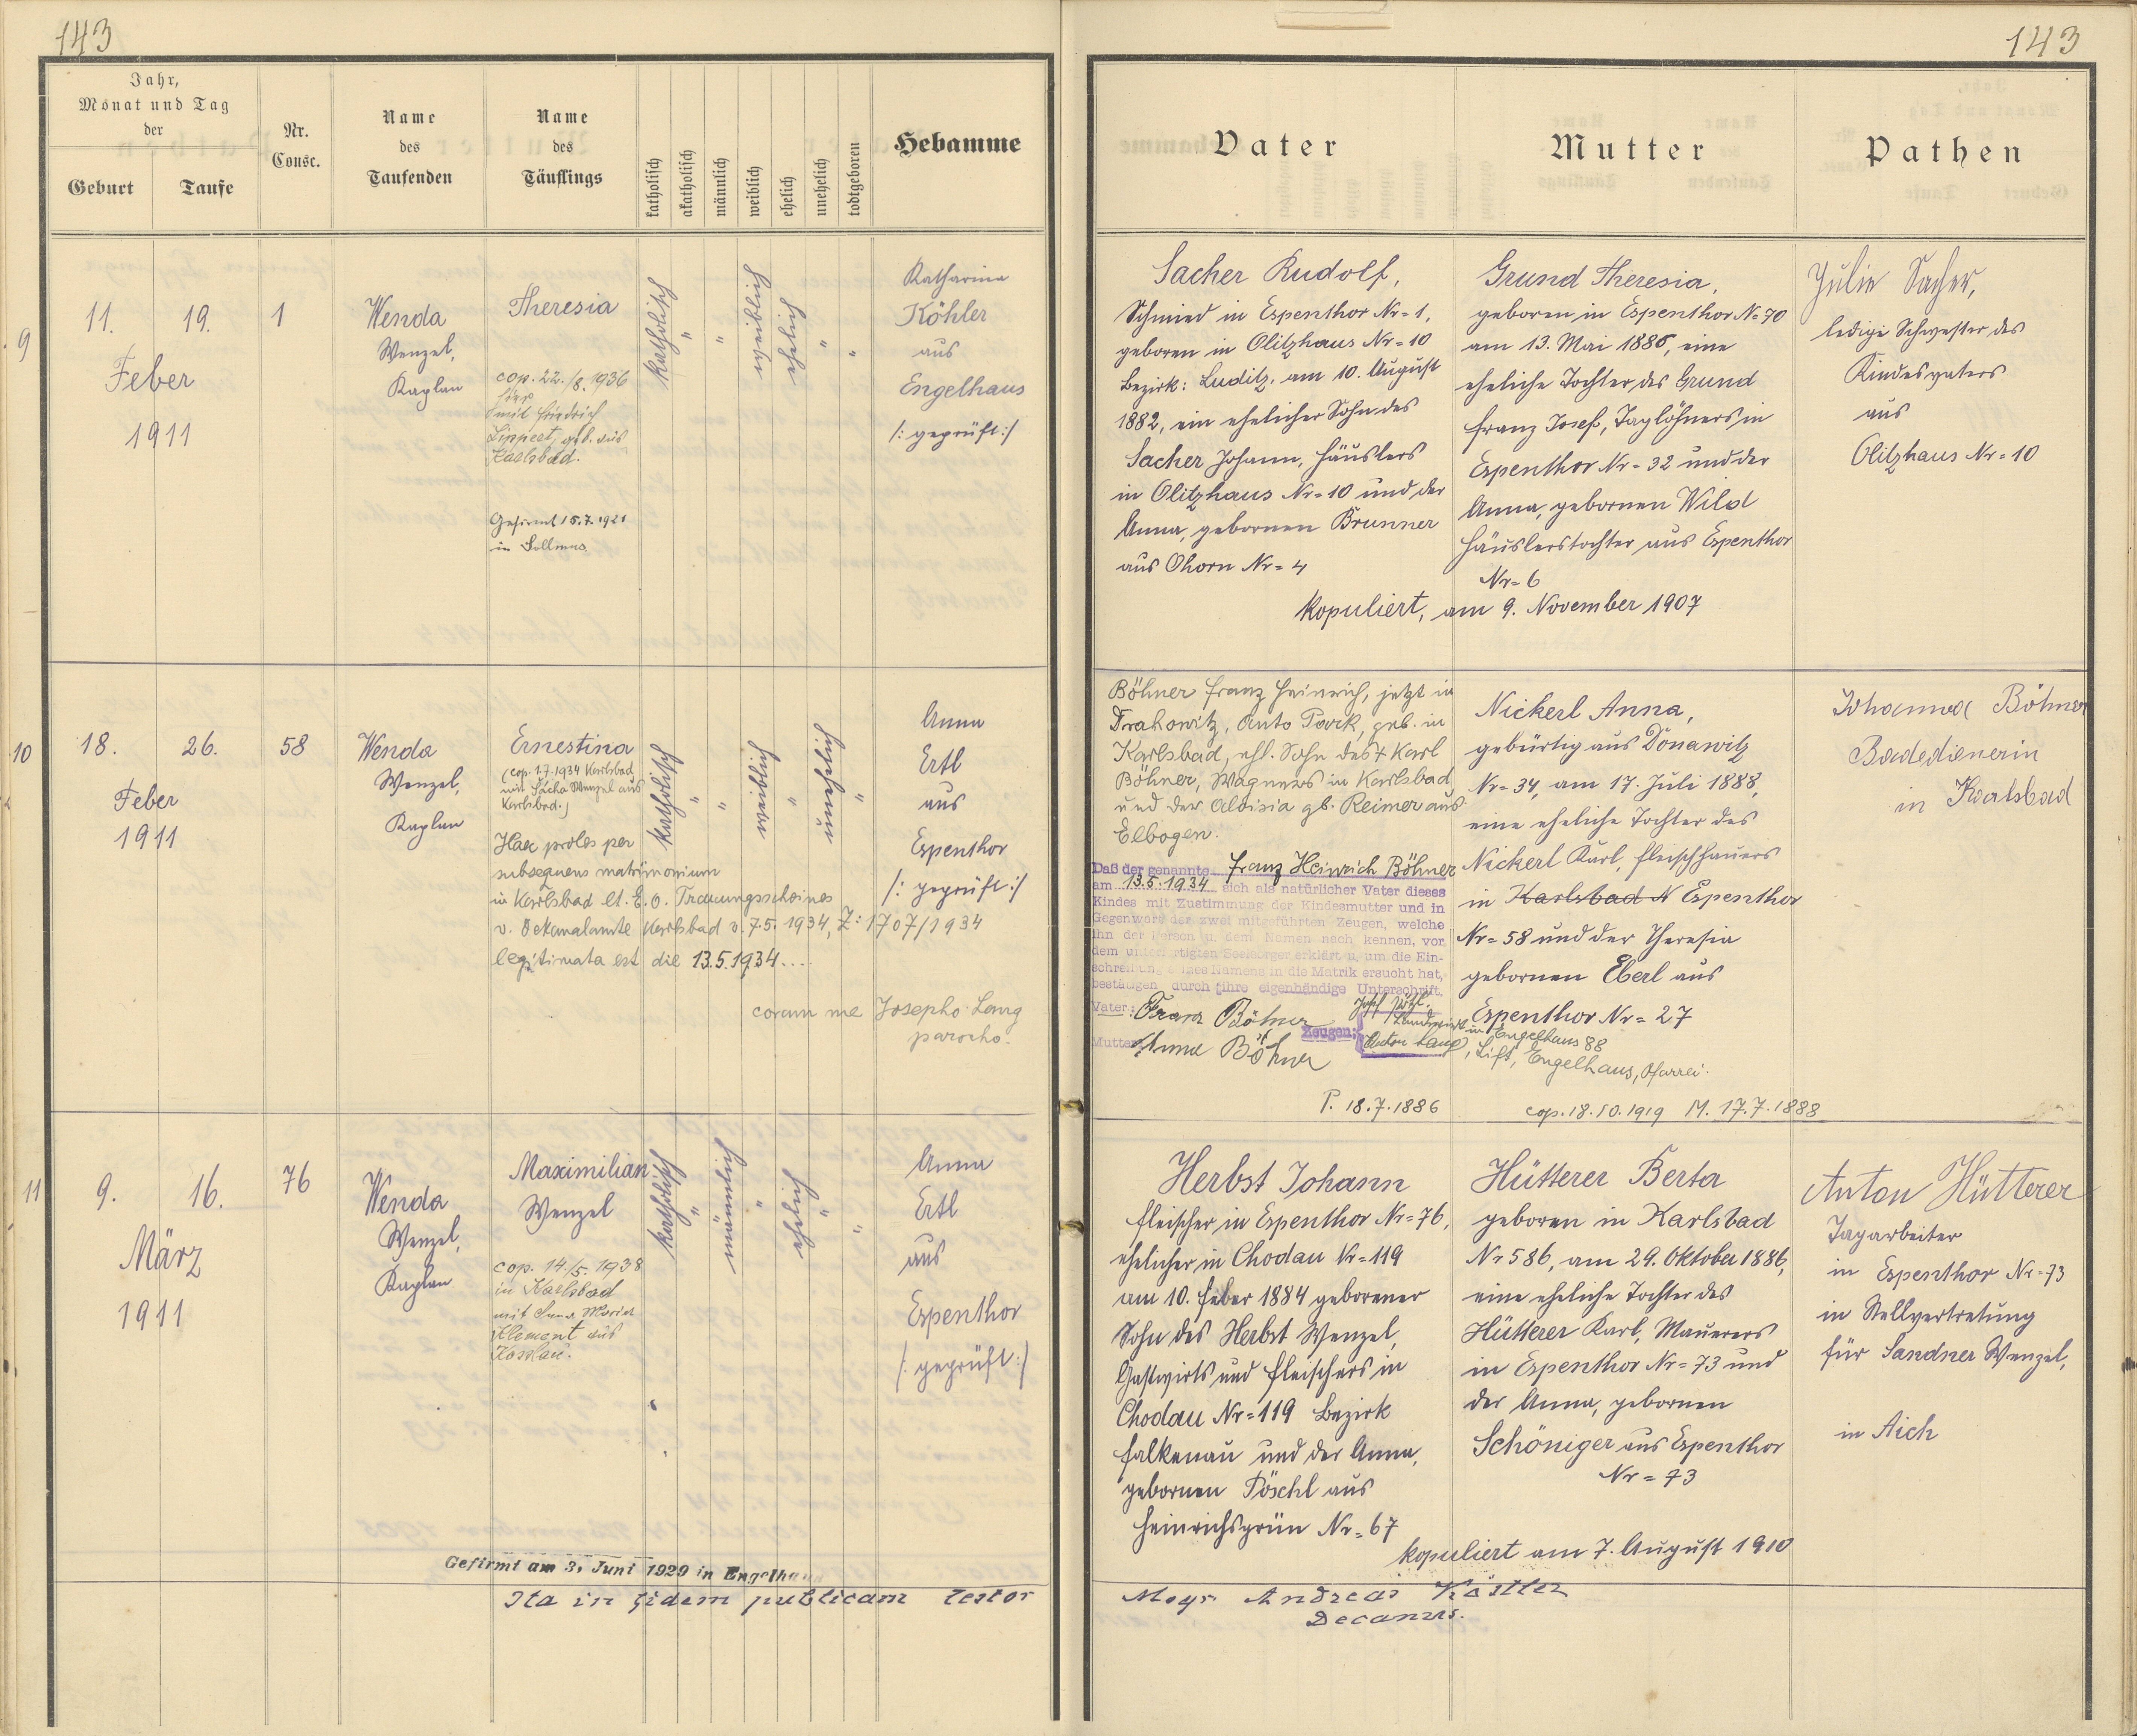 143
143
Jahr,
Monat und Tag
der
Geburt
Taufe
Nr.
Consc.
Name
des
Taufenden
Name
des
Täuflings
katholisch
akatholisch
männlich
weiblich
ehelich
unehelich
todtgeboren
Hebamme
Vater
Mutter
Pathen
9
11.
19.
Feber
1911
1
Wenda
Wenzel,
Kaplan
Theresia
cop. 22./8. 1936
hier
mit Friedrich
Lippert, geb. aus
Karlsbad.
Gefirmt 15.7.1921
in Sollmus
katholisch
"
"
weiblich
ehelich
"
"
Katharina
Köhler
aus
Engelhaus
/: geprüft :/
Sacher Rudolf,
Schmied in Espenthor Nr = 1,
geboren in Olitzhaus Nr = 10
Bezirk: Luditz, am 10. August
1882, ein ehelicher Sohn des
Sacher Johann, Häuslers
in Olitzhaus Nr = 10 und der
Anna, gebornen Brunner
aus Ohorn Nr = 4
Grund Theresia,
geboren in Espenthor Nr = 70
am 13. Mai 1886, eine
eheliche Tochter des Grund
Franz Josef, Taglöhners in
Espenthor Nr = 32 und der
Anna, gebornen Wild
Häuslerstochter aus Espenthor
Nr = 6
kopuliert, am 9. November 1907
Julie Sacher,
ledige Schwester des
Kindesvaters
aus
Olitzhaus Nr = 10
10
18.
26.
Feber
1911
58
Wenda
Wenzel,
Kaplan
Ernestina
(cop. 1.7.1934 Karlsbad
mit Sacha Wenzel aus
Karlsbad.)
Haec proles per
subsequens matrimonium
in Karlsbad lt. E. o. Trauungsscheines
v. Dekanalamte Karlsbad v. 7.5.1934, Z: 1707/1934
legitimata est die 13.5.1934....
coram me Josepho Lang
parocho.
katholisch
"
"
weiblich
"
unehelich
"
Anna
Ertl
aus
Espenthor
/: geprüft :/
Böhner Franz Heinrich, jetzt in
Drahowitz, Auto Park, geb. in
Karlsbad, ehl. Sohn des + Karl
Böhner, Wagners in Karlsbad
und der Aloisia gb. Reimer aus
Elbogen.
Daß der genannte Franz Heinrich Böhner
am 13.5.1934 sich als natürlicher Vater dieses
Kindes mit Zustimmung der Kindesmutter und in
Gegenwart der zwei mitgeführten Zeugen, welche
ihn der Person u. dem Namen nach kennen, vor
dem unterfertigten Seelsorger erklärt u. um die Ein-
schreibung seines Namens in die Matrik ersucht hat,
bestätigen durch ihre eigenhändige Unterschrift.
Vater: Franz Böhner
Mutter: Anna Böhner
Zeugen:
Landwirt in Engelhaus 88
Anton Lang, Stift, Engelhaus, Pfarrei.
P. 18.7.1886
cop. 18.10.1919 M. 17.7.1888
Nickerl Anna,
gebürtig aus Donawitz
Nr = 34, am 17. Juli 1888,
eine eheliche Tochter des
Nickerl Karl, Fleischhauers
in Karlsbad N Espenthor
Nr = 58 und der Theresia
gebornen Eberl aus
Espenthor Nr = 27
Johanna Böhner
Badedienerin
in Karlsbad
11
9.
16.
März
1911
76
Wenda
Wenzel,
Kaplan
Maximilian
Wenzel
cop. 14./5. 1938
in Karlsbad
mit Anna Maria
Klement aus
katholisch
"
männlich
"
ehelich
"
"
Anna
Ertl
aus
Espenthor
/: geprüft :/
Herbst Johann
Fleischer in Espenthor Nr = 76,
ehelicher in Chodau Nr = 119
am 10. Feber 1884 geborener
Sohn des Herbst Wenzel,
Gastwirts und Fleischers in
Chodau Nr = 119 Bezirk
Falkenau und der Anna,
gebornen Pöschl aus
Heinrichsgrün Nr = 67
Hütterer Berta
geboren in Karlsbad
Nr 586, am 29. Oktober 1886,
eine eheliche Tochter des
Hütterer Karl, Maurers
in Espenthor Nr = 73 und
der Anna, gebornen
Schöniger aus Espenthor
Nr = 73
kopuliert am 7. August 1910
Anton Hütterer
Tagarbeiter
in Espenthor Nr = 73
in Stellvertretung
für Sandner Wenzel,
in Aich
Gefirmt am 3. Juni 1929 in Engelhaus
Ita in fidem publicam testor
Msgr. Andreas Köstler
Decanus.